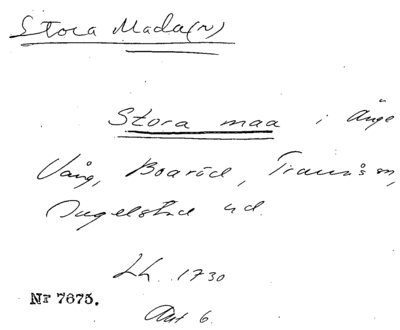 Stora Mada(n)
Stora maa i Ånge
Vång, Boaröd, Tranås sn,
Ingelstad hd.
Lh. 1730
Nr 7675.
Akt 6.